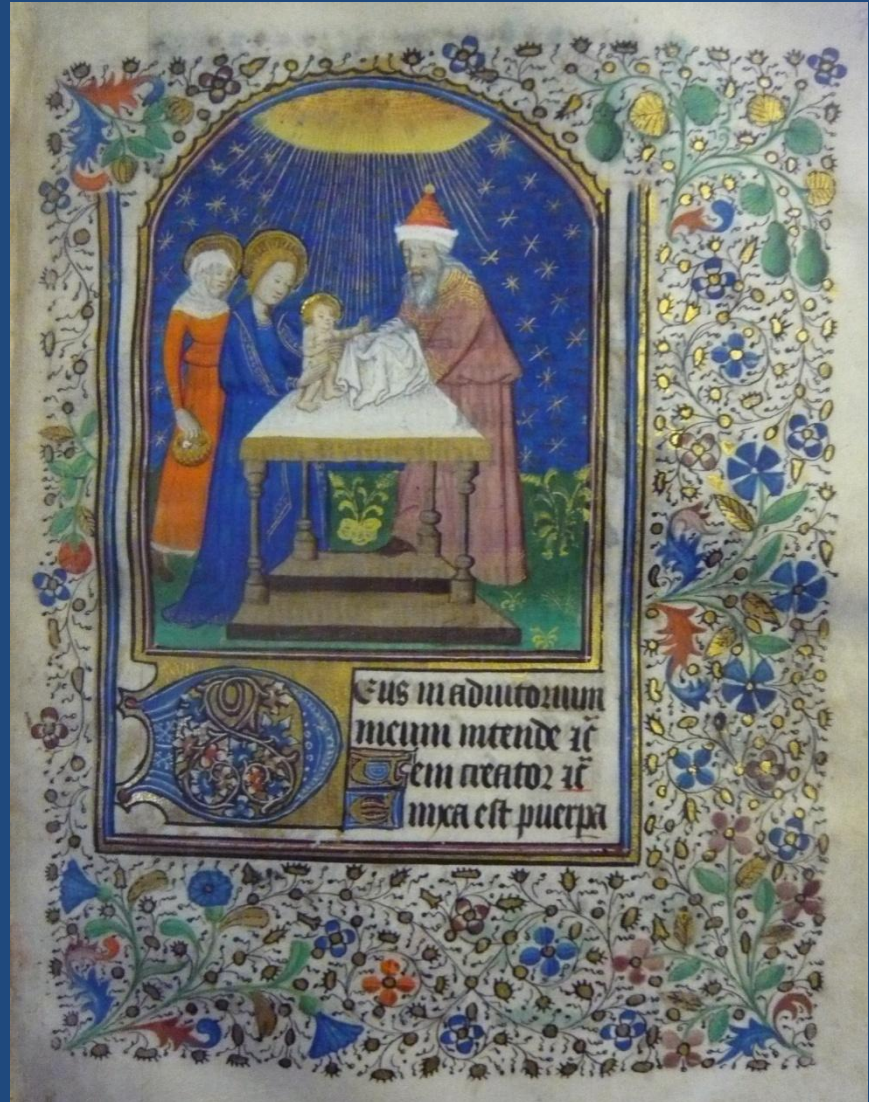 Deus in adiutorium
meum intende ⁊c̃
Veni creator ⁊c̃
Enixa est puerpa